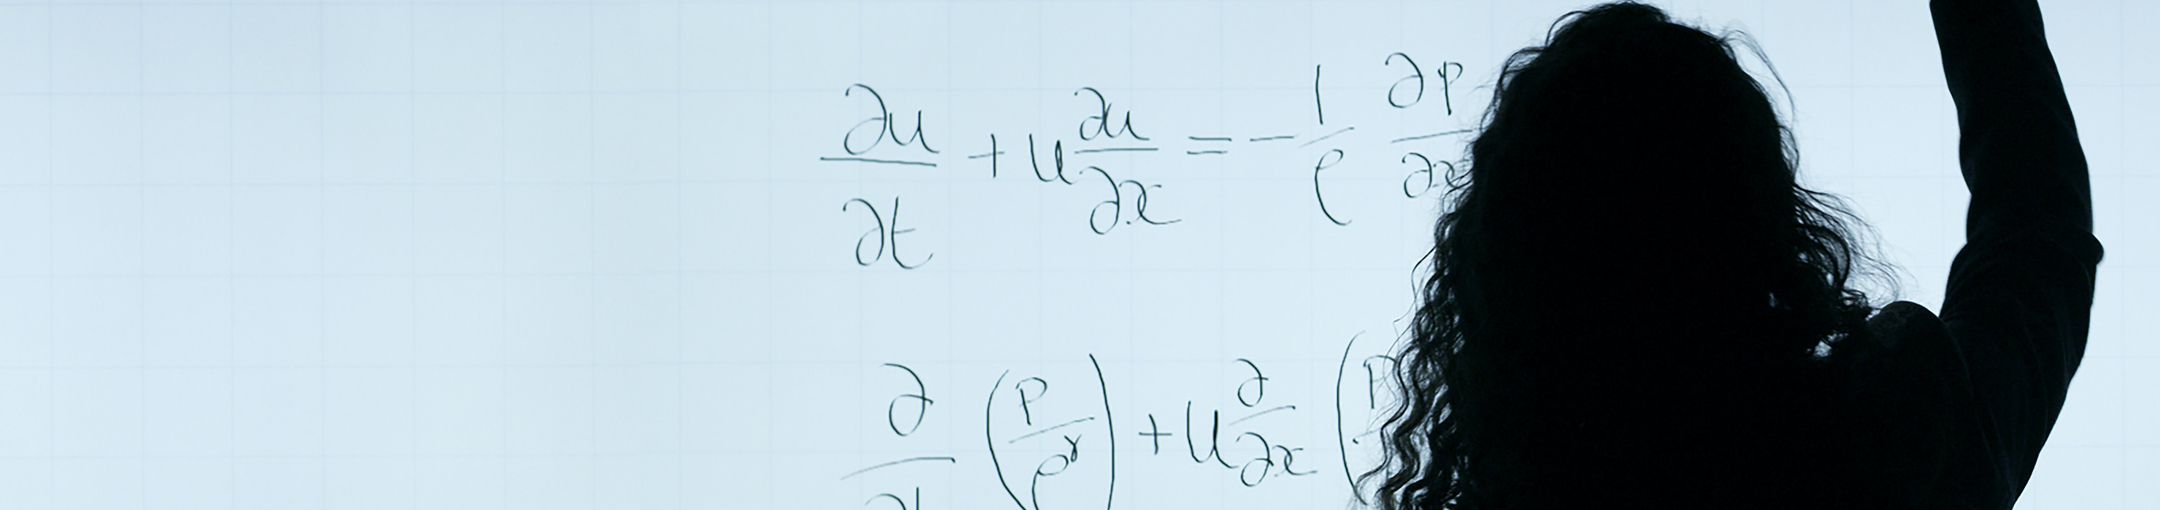 ∂u/∂t + u ∂u/∂x = - 1/ρ ∂p/∂x
∂/∂t (p/ρ^γ) + u ∂/∂x (p